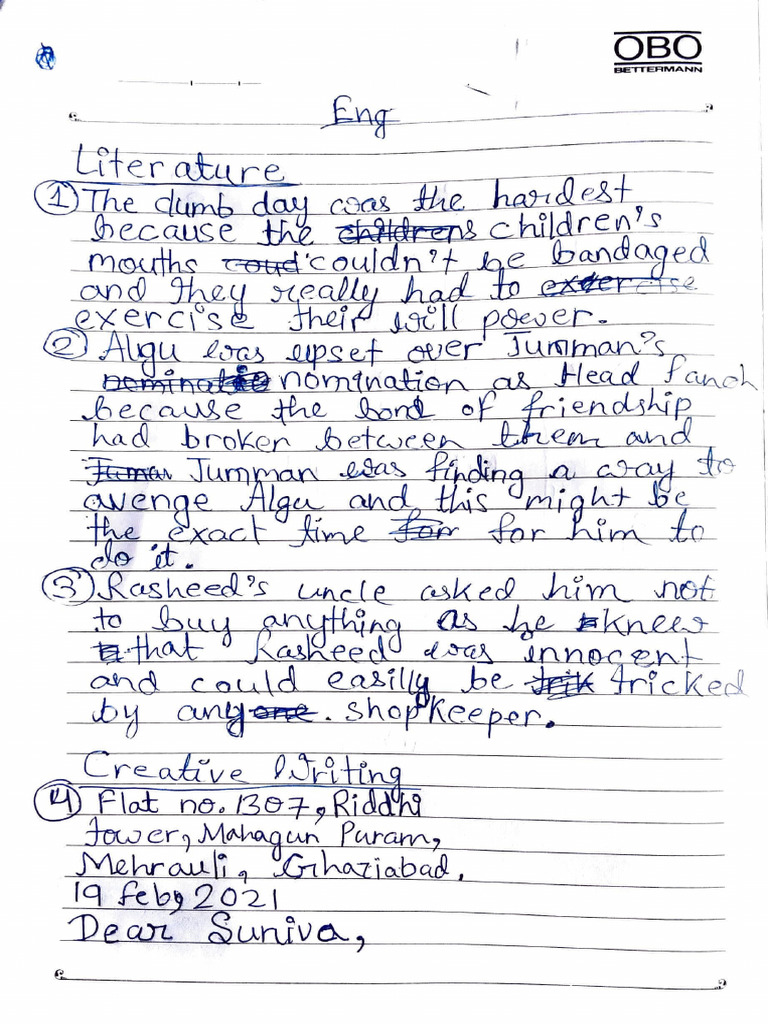 OBO
BETTERMANN
Eng
Literature
1 The dumb day was the hardest
because the childrens children's
mouths coud couldn't be bandaged
and they really had to exercise
exercise their will power.
2 Algu was upset over Jumman's
nominatio nomination as Head Panch
because the bond of friendship
had broken between them and
Juman Jumman was finding a way to
avenge Algu and this might be
the exact time for for him to
do it.
3 Rasheed's uncle asked him not
to buy anything as he knew
that Rasheed was innocent
and could easilly be trik tricked
by anyone. shopkeeper.
Creative Writing
4 Flat no. 1307, Riddhi
Tower, Mahagun Puram,
Mehrauli, Ghaziabad.
19 feb, 2021
Dear Suniva,